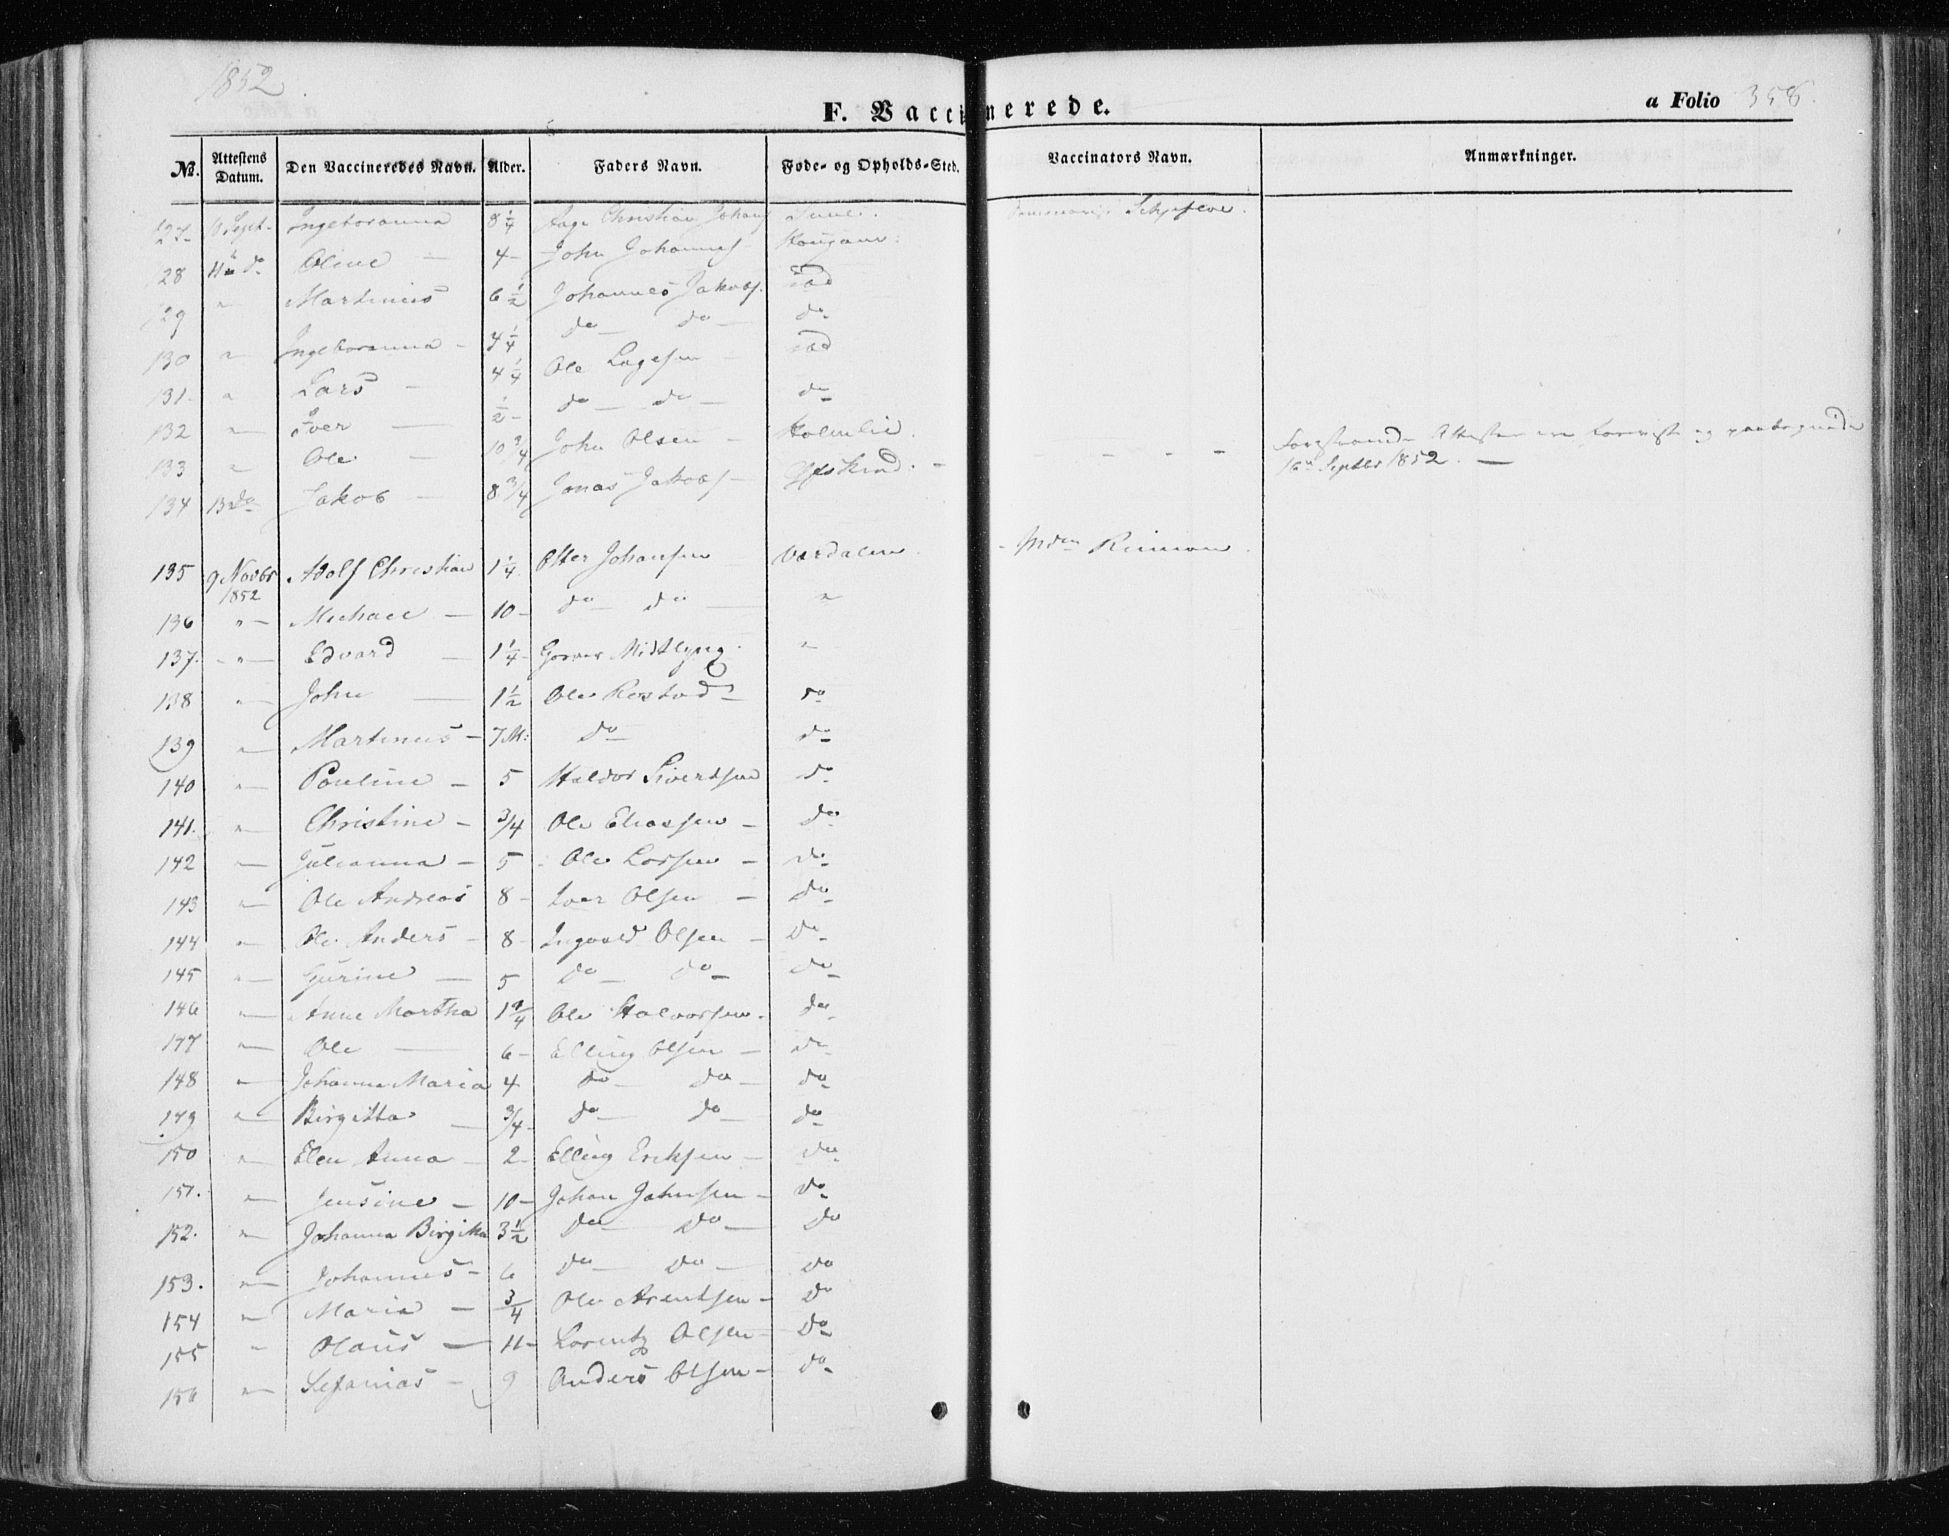 1852
F. Vaccinerede.
a Folio 358.
No. Attestens Datum. Den Vaccineredes Navn. Alder. Faders Navn. Føde- og Opholds-Sted. Vaccinators Navn. Anmærkninger.
127 10 Sept. Ingeboranna 8 1/4 Aage Christian Johans
28 11 do Oline — 4 - John Johannes
129 " Martinus 6 1/2 Johannes Jakobs.
130 " Ingeboranna - 4 1/4 do — do — do
131 " Lars — 4 1/4 Ole Lagesen —
132 " Iver — 1/2 - do — do — do
133 " Ole — 10 3/4 John Olsen — Holmlid
134 13 do Jakob — 8 3/4 Jonas Jakobs — - - -
16de Septbr 1852. —
135 9 Novbr 1852 Adolf Christian 1 1/4 Otter Johansen Værdalen
136 " Michael — 10 - do do — "
137. " Edvard — 1 1/4 - Midtlyng. "
138 " John — 1 1/2 Ole Rostad — do
139 " Martinus — 7 M: do — do
140 " Pauline — 5 Haldor Sivertsen do
141. " Christine — 3/4 Ole Eliassen — do
142 " Julianna — 5 Ole Larsen — do
143 " Ole Andreas 8 - Iver Olsen — do
144 " Ole Anders — 8 - Ingvald Olsen — do
145 " Gurine — 5 do do — do
146 " Anne Martha 1 1/4 Ole Halvorsen. do
147 " Ole — 6 - Elling Olsen — do
148 " Johanna Maria 4 do — do — do
149 " Birgitta — 3/4 - do — do — do
150 " Elen Anna — 2 - Elling Eriksen — do
151. " Jensine — 10 - Johan Johnsen — do
152. " Johanna Birgitta 3 1/2 do — do — do
153. " Johannes — 6 do — do — do
154 " Maria — 3/4 Ole Arentsen — do
155 " Olaus — 11 - Lorentz Olsen — do
156 " Sefanias — 9 Anders Olsen — do